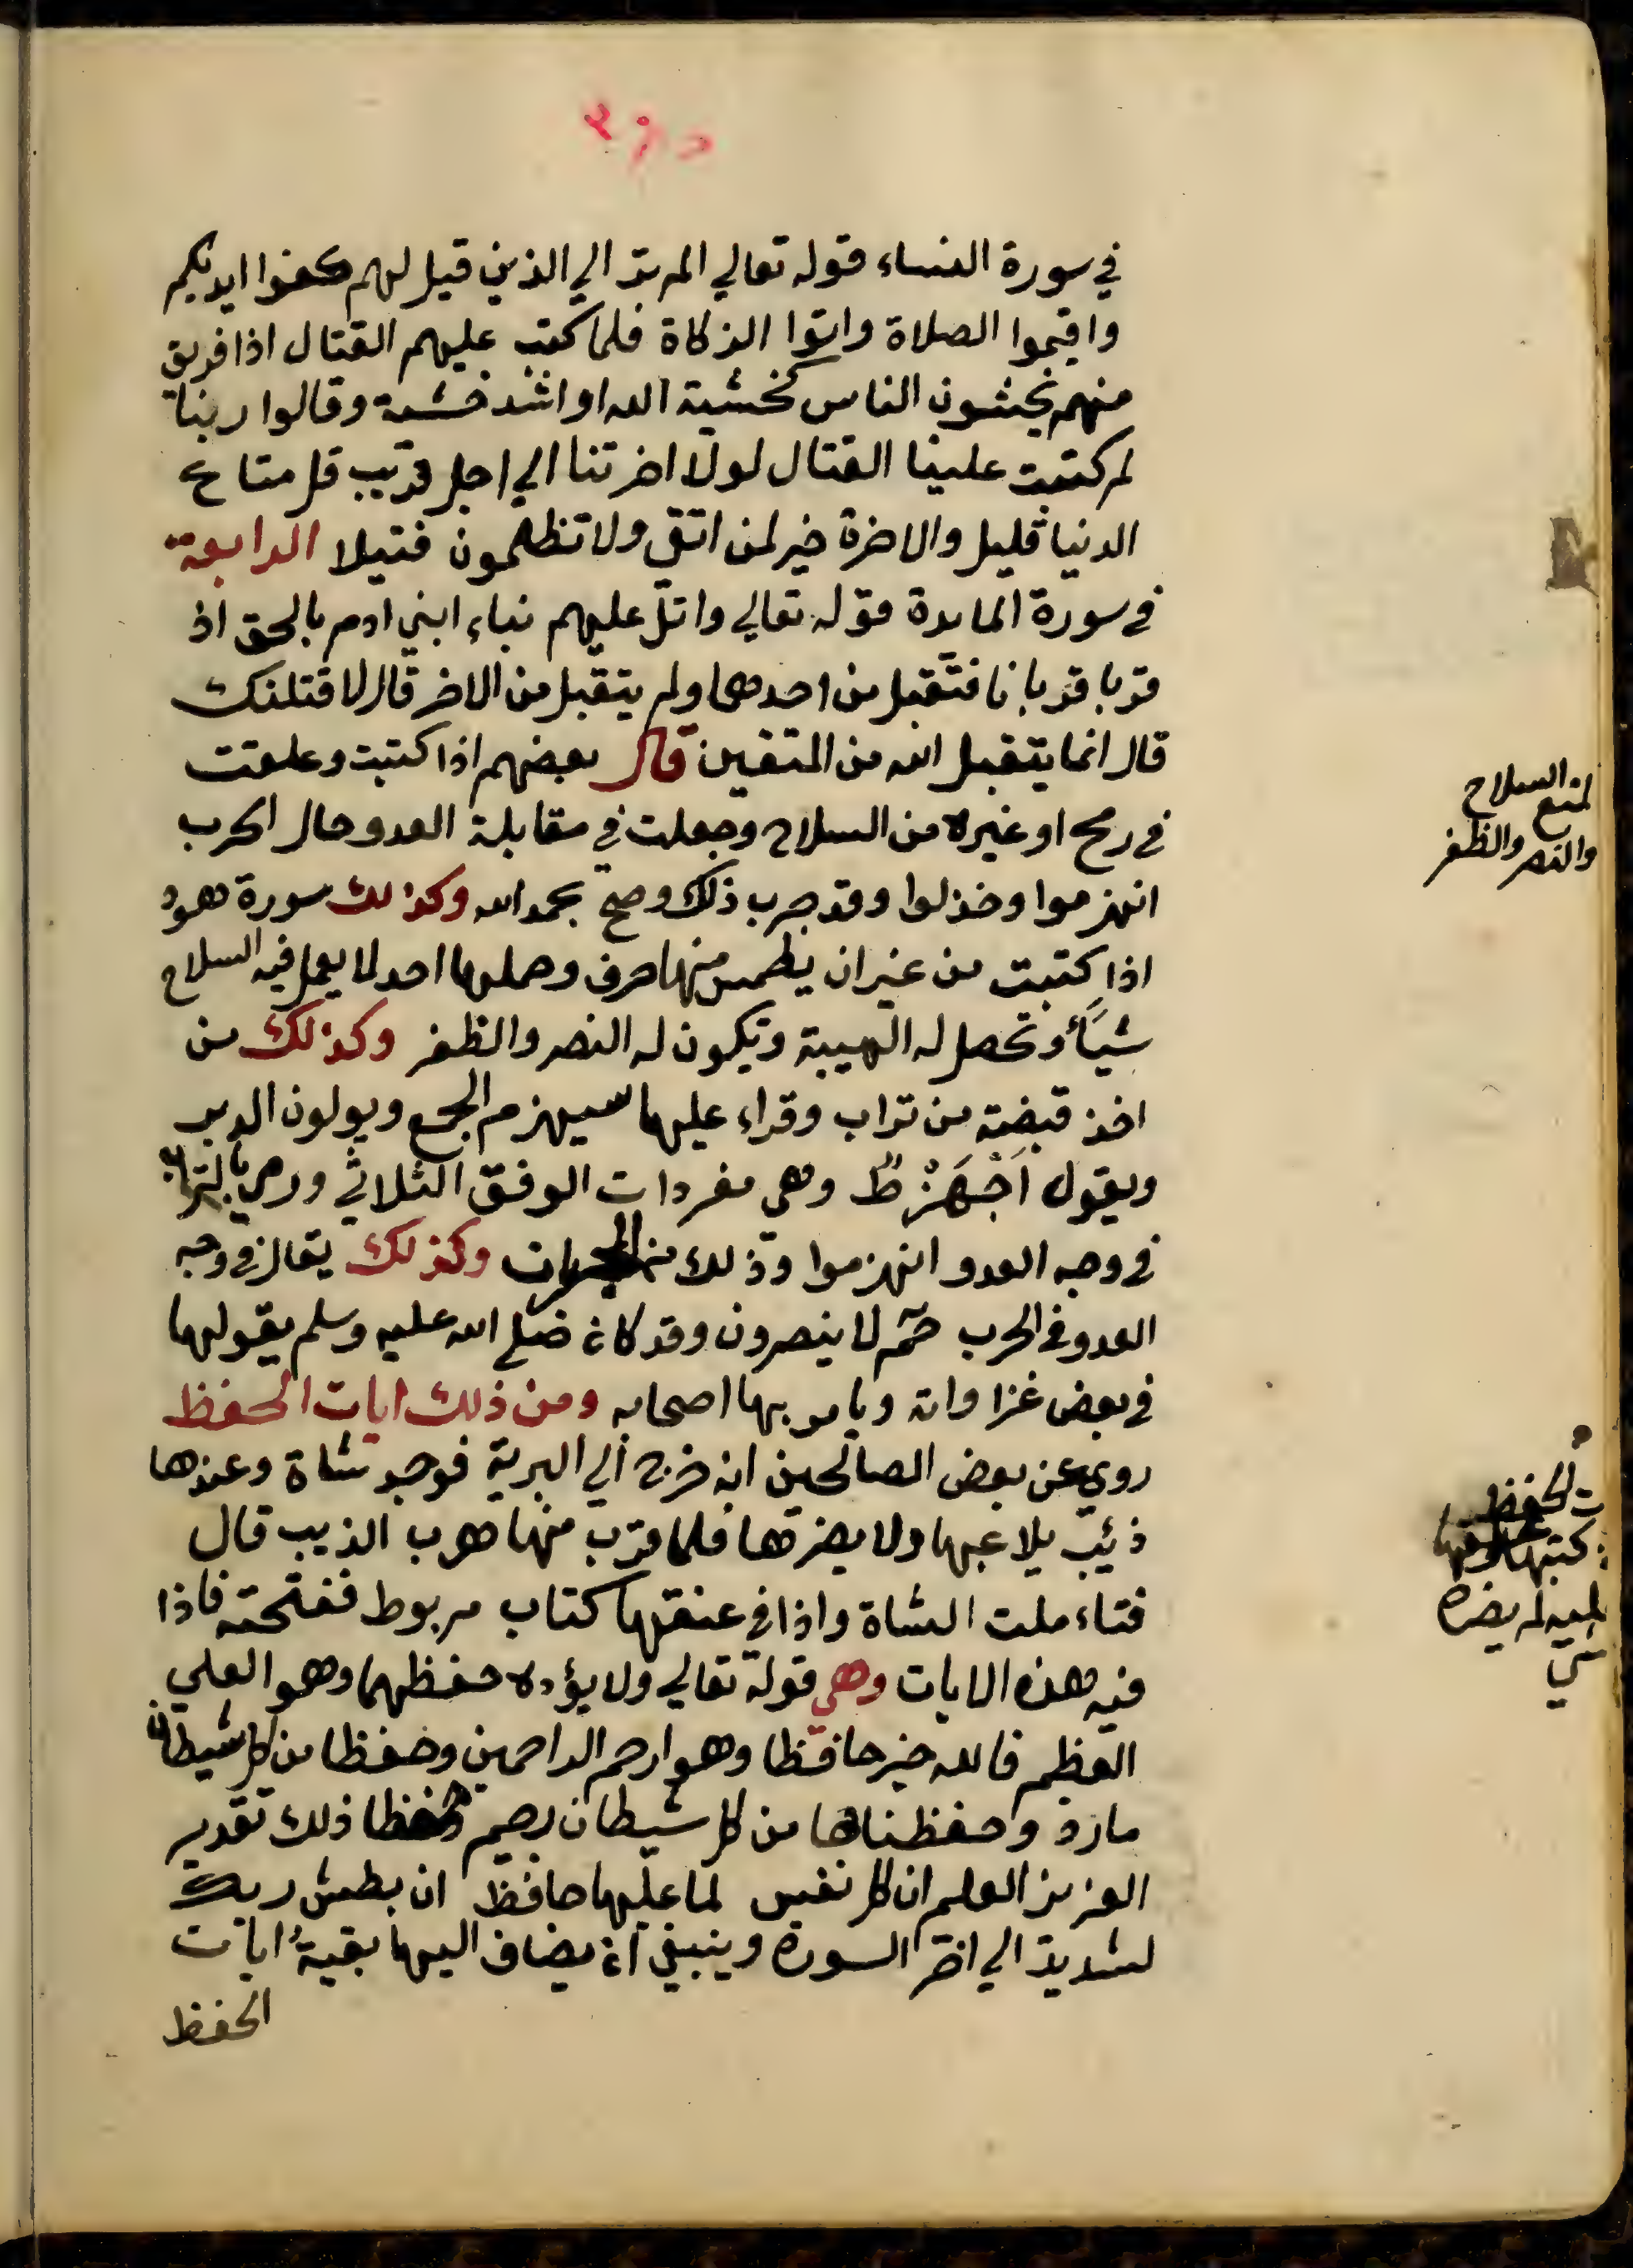 في سورة النساء قوله تعالي الم تر الي الذين قيل لهم كفوا ايديكم
واقيموا الصلاة واتوا الزكاة فلما كتب عليهم القتال اذا فريق
منهم يخشون الناس كخشية الله او اشد خشية وقالوا ربنا
لم كتبت علينا القتال لولا اخرتنا الي اجل قريب قل متاع
الدنيا قليل والاخرة خير لمن اتقي ولا تظلمون فتيلا الرابعة
في سورة المايدة قوله تعالي واتل عليهم نباء ابني ادم بالحق اذ
قربا قربانا فتقبل من احدهما ولم يتقبل من الاخر قال لاقتلنك
قال انما يتقبل الله من المتقين قال بعضهم اذا كتبت وعلقت
في رمح او غيره من السلاح وجعلت في مقابلة العدو حال الحرب
انهزموا وخذلوا وقد جرب ذلك وصح بحمد الله وكذلك سورة هود
اذا كتبت من غير ان يطمس منها حرف وحملها احد لا يعمل فيه السلاح
شيأ وتحصل له الهيبة ويكون له النصر والظفر وكذلك من
اخذ قبضة من تراب وقراء عليها سيهزم الجمع ويولون الدبر
ويقول اجهزط وهي مفردات الوفق الثلاثي ورمي بالتراب
في وجه العدو انهزموا وذلك من المجربات وكذلك يقال في وجه
العدو في الحرب حم لا ينصرون وقد كان صلي الله عليه وسلم يقولها
في بعض غزاواته ويامر بها اصحابه ومن ذلك ايات الحفظ
روي عن بعض الصالحين انه خرج الي البرية فوجد شاة وعندها
ذئيب يلاعبها ولا يضرها فلما قرب منها هرب الذيب قال
فتاءملت الشاة واذا في عنقها كتاب مربوط ففتحته فاذا
فيه هذه الايات وهي قوله تعالي ولا يؤده حفظهما وهو العلي
العظيم فالله خير حافظا وهو ارحم الراحمين وحفظا من كل شيطان
مارد وحفظناها من كل شيطان رجيم وحفظا ذلك تقدير
العزيز العليم ان كل نفس لما عليها حافظ ان بطش ربك
لشديد الي اخر السورة وينبغي ان يضاف اليها بقية ايات
الحفظ
لمنع السلاح
والنصر والظفر
ت الحفظ
كتبها
لم يضره
شي